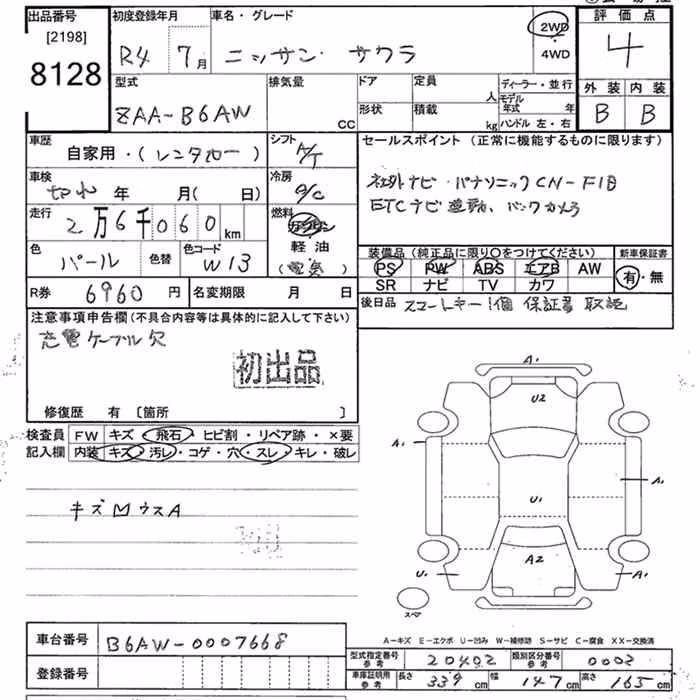 出品番号 初度登録年月 車名・グレード 評価点
[2198]
8128
R4 7月 ニッサン サクラ 2WD・4WD 4
型式 排気量 ドア 定員 ディーラー・並行 外装 内装
ZAA-B6AW CC 形状 積載 人 kg モデル年式 年 ハンドル 左・右 B B
車歴 シフト セールスポイント (正常に機能するものに限ります)
自家用・(レンタカー) A/T
車検 冷房 社外ナビ・パナソニックCN-F1D
切れ 年 月(日) A/C ETCナビ連動、バックカメラ
走行 燃料
2万6千060km ガソリン
色 色替 色コード 軽油 装備品(純正品に限り○をつけてください) 新車保証書
パール W13 (電気) PS PW ABS エアB AW 有・無
SR ナビ TV カワ
R券 6960円 名変期限 月 日 後日品 スマートキー1個 保証書 取説
注意事項申告欄(不具合内容等は具体的に記入して下さい)
充電ケーブル欠
初出品
修復歴 有 [箇所 ]
検査員 FW キズ・飛石・ヒビ割・リペア跡・×要
記入欄 内装 キズ・汚レ・コゲ・穴・スレ・キレ・破レ
キズ ウスA
A1
U2
A1
A1
U1
A2
U1
A1
スペア
A-キズ E-エクボ U-凹み W-補修跡 S-サビ C-腐食 XX-交換済
車台番号 B6AW-0007668
型式指定番号 参考 20402 類別区分番号 参考 0003
登録番号
車庫証明用 参考 長さ 339cm 幅 147cm 高さ 165cm